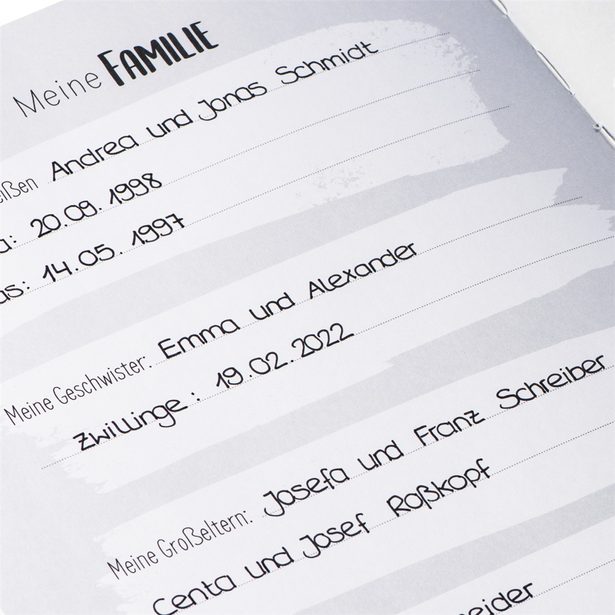 Meine FAMILIE
Andrea und Jonas Schmidt
20.09.1998
14.05.1997
Meine Geschwister: Emma und Alexander
Zwillinge: 19.02.2022
Meine Großeltern: Josefa und Franz Schreiber
Centa und Josef Roßkopf